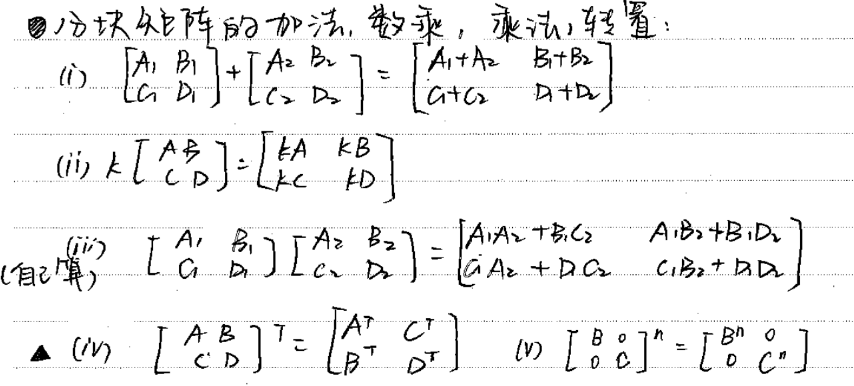 ●分块矩阵的加法,数乘,乘法,转置:
(i) [A₁ B₁; C₁ D₁] + [A₂ B₂; C₂ D₂] = [A₁+A₂ B₁+B₂; C₁+C₂ D₁+D₂]
(ii) k [A B; C D] = [kA kB; kC kD]
(iii) [A₁ B₁; C₁ D₁] [A₂ B₂; C₂ D₂] = [A₁A₂+B₁C₂ A₁B₂+B₁D₂; C₁A₂+D₁C₂ C₁B₂+D₁D₂]
(自己算)
▲ (iv) [A B; C D]ᵀ = [Aᵀ Cᵀ; Bᵀ Dᵀ] (v) [B 0; 0 C]ⁿ = [Bⁿ 0; 0 Cⁿ]